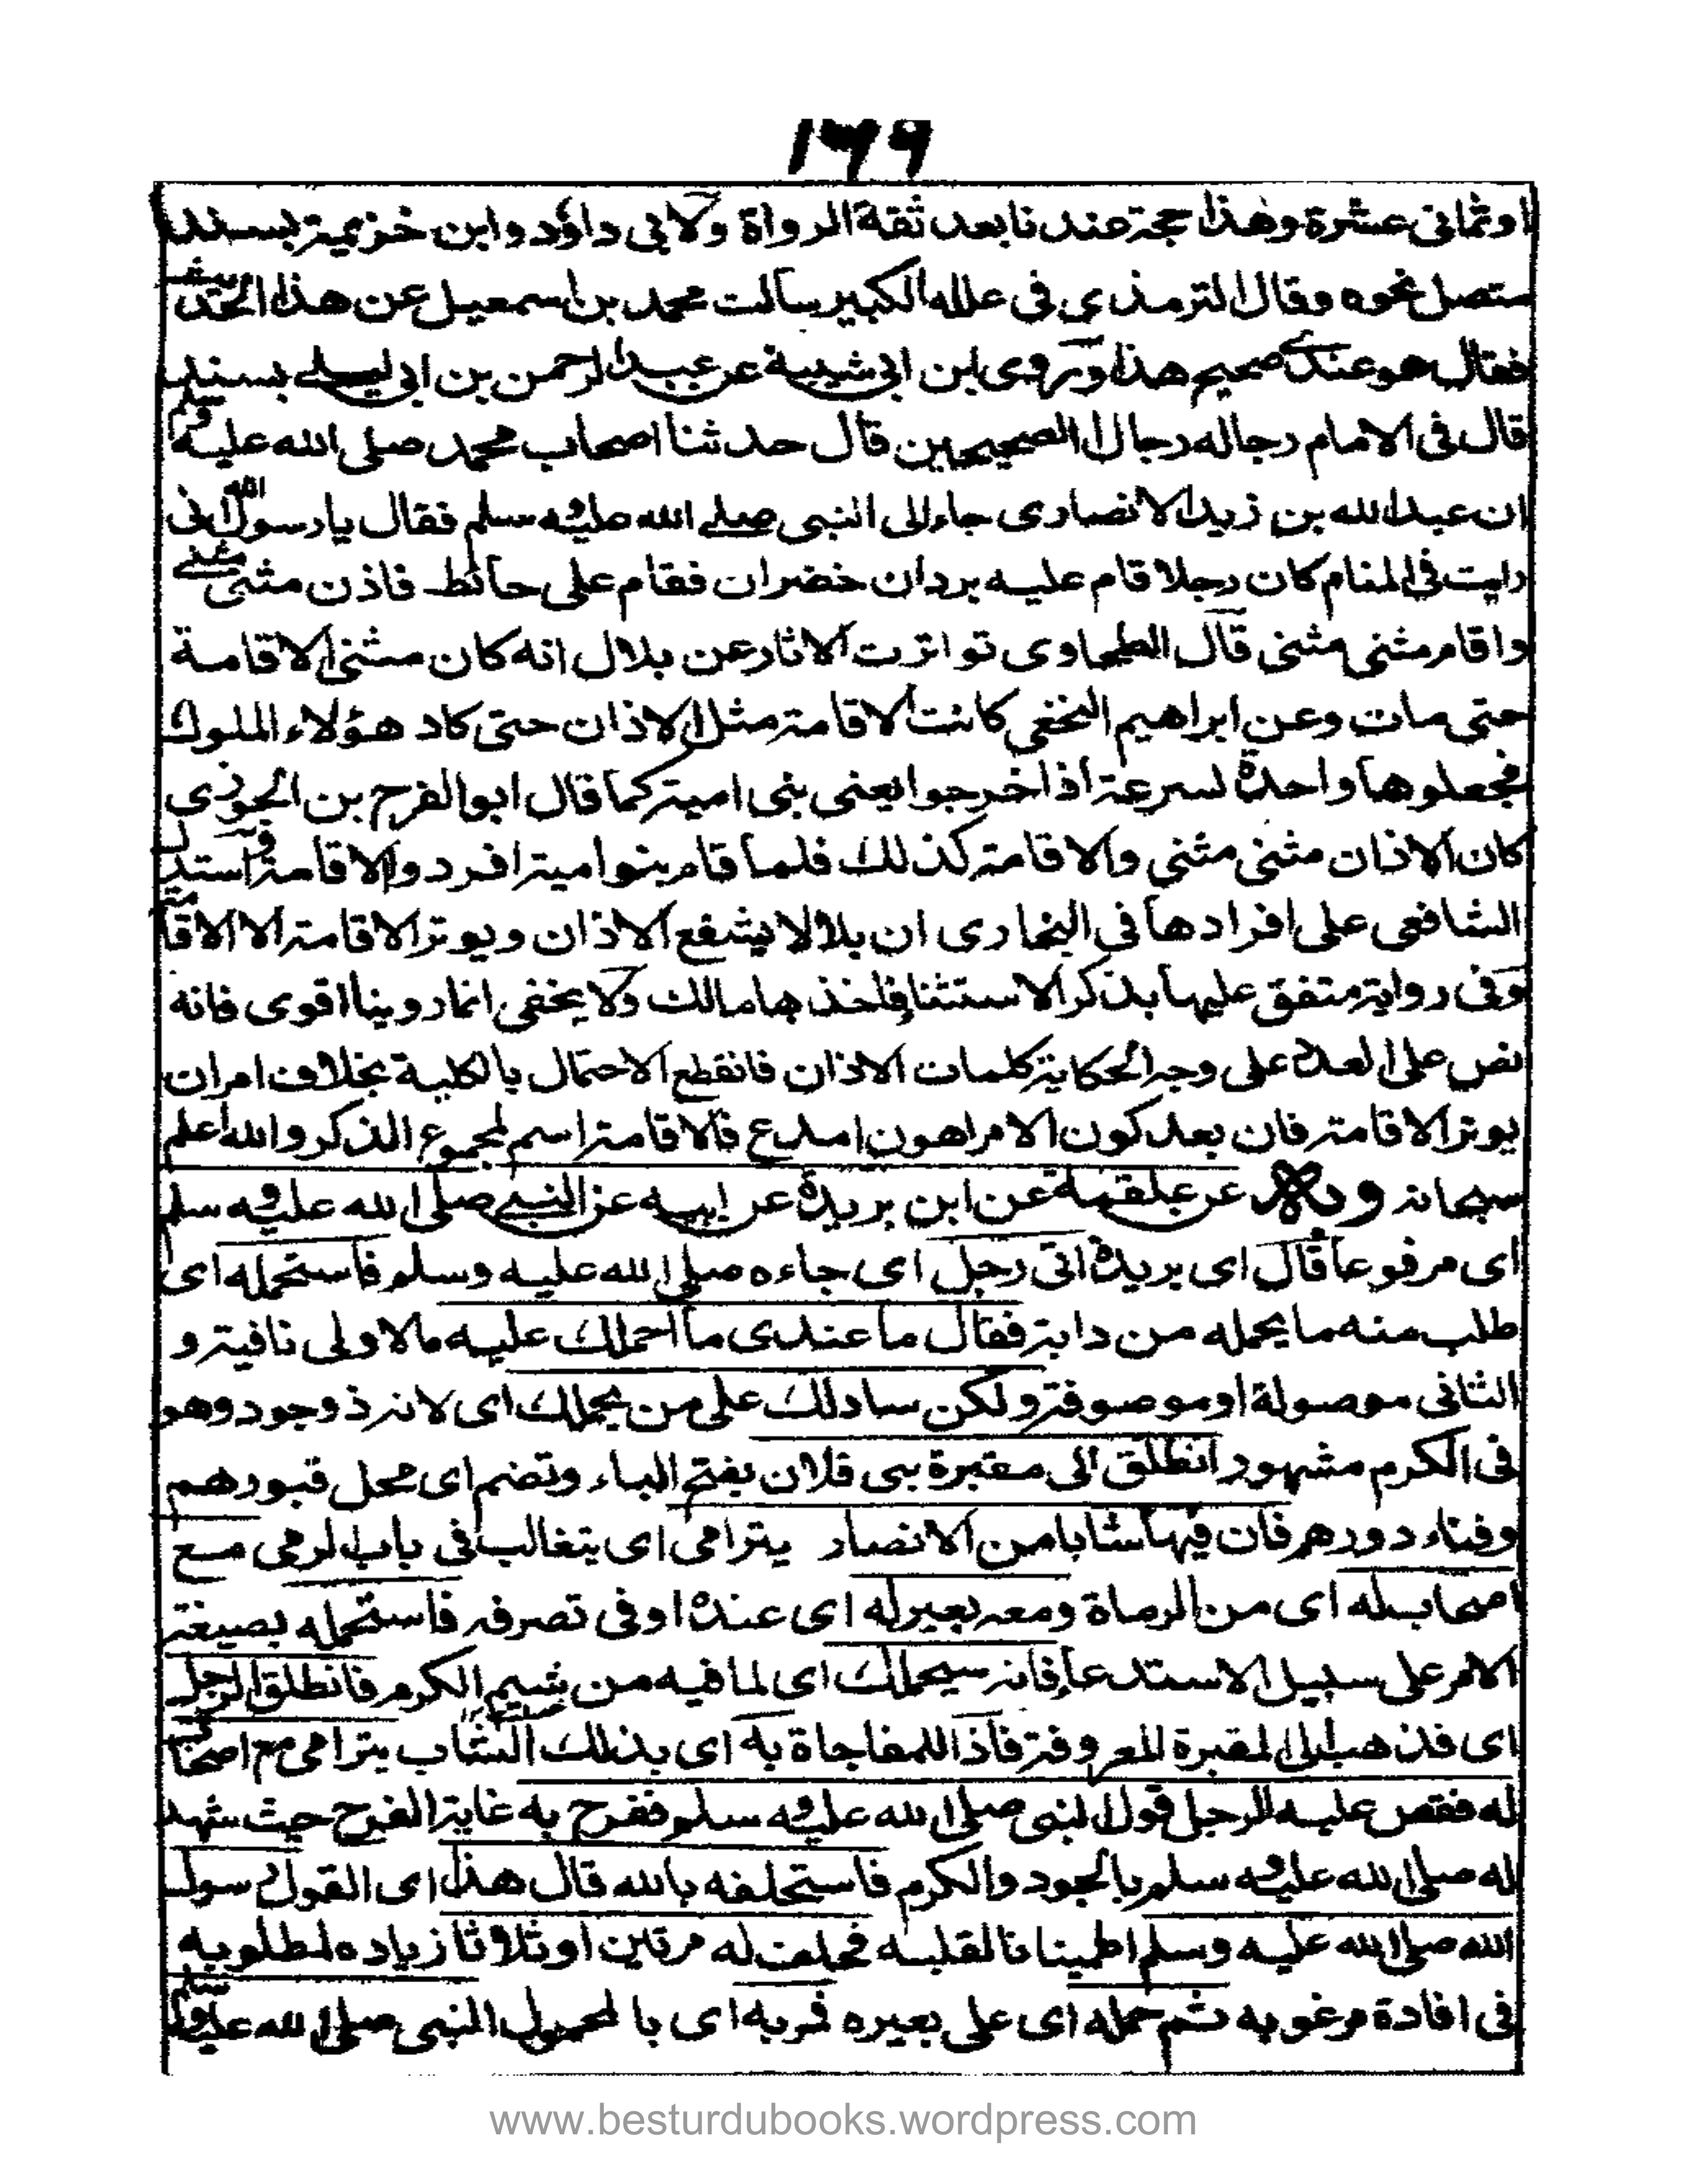 ١٦٩
او ثمانى عشرة وهذا حجة عندنا بعد ثقة الرواة ولابى داؤد وابن خزيمة بسند
متصل نحوه وقال الترمذي فى علله الكبير سالت محمد بن اسمعيل عن هذا الحديث
فقال هو عندى صحيح هذا وروى ابن ابى شيبة عن عبد الرحمن بن ابى ليلى بسند
قال فى الامام رجاله رجال الصحيحين قال حدثنا اصحاب محمد صلى الله عليه وسلم
ان عبد الله بن زيد الانصارى جاء الى النبى صلى الله عليه وسلم فقال يا رسول الله انى
رايت فى المنام كان رجلا قام عليه بردان خضران فقام على حائط فاذن مثنى مثنى
واقام مثنى مثنى قال الطحاوى تواترت الاثار عن بلال انه كان مثنى الاقامة
حتى مات وعن ابراهيم النخعى كانت الاقامة مثل الاذان حتى كاد هؤلاء الملوك
فجعلوها واحدة لسرعة اذا خرجوا يعنى بنى امية كما قال ابو الفرج بن الجوزى
كان الاذان مثنى مثنى والاقامة كذلك فلما قام بنو امية افردوا الاقامة واستدل
الشافعى على افرادها فى البخارى ان بلالا يشفع الاذان ويوتر الاقامة الا الاقامة
وفى رواية متفق عليها بذكر الاستثناء فلخذ بها مالك ولا يخفى انما روينا اقوى فانه
نص على العدد على وجه الحكاية كلمات الاذان فانقطع الاحتمال بالكلية بخلاف امر ان
يوتر الاقامة فان بعد كون الامر اهون فالاقامة اسم لمجموع الذكر والله اعلم
سبحانه وبه عن علقمة عن ابن بريدة عن ابيه عن النبى صلى الله عليه وسلم
اى مرفوعا قال اى بريدة اتى رجل اى جاءه صلى الله عليه وسلم فاستحمله اى
طلب منه ما يحمله من دابة فقال ما عندى ما احملك عليه ما الاولى نافية و
الثانى موصولة او موصوفة ولكن سادلك على من يحملك اى لانه ذو جود وهو
فى الكرم مشهود انطلق الى مقبرة بنى فلان بفتح الباء وتضم اى محل قبورهم
وفناء دورهم فان فيها شابا من الانصار يترامى اى يتغالب فى باب الرمى مع
اصحاب له اى من الرماة ومعه بعير له اى عنده او فى تصرفه فاستحمله بصيغة
الامر على سبيل الاستدعاء فانه سيحملك اى لما فيه من شيم الكرم فانطلق الرجل
اى فذهب الى المقبرة المعروفة فاذا للمفاجاة به اى بذلك الشاب يترامى مع اصحاب
له فقص عليه الرجل قول النبى صلى الله عليه وسلم ففرح به غاية الفرح حيث شهد
له صلى الله عليه وسلم بالجود والكرم فاستحلفه بالله قال هذا اى القول رسول
الله صلى الله عليه وسلم اطمينانا لقلبه فحلف له مرتين او ثلاثا زيادة لمطلوبه
فى افادة مرغوبه ثم حمله اى على بعيره فمر به اى بالمحمول النبى صلى الله عليه وسلم
www.besturdubooks.wordpress.com